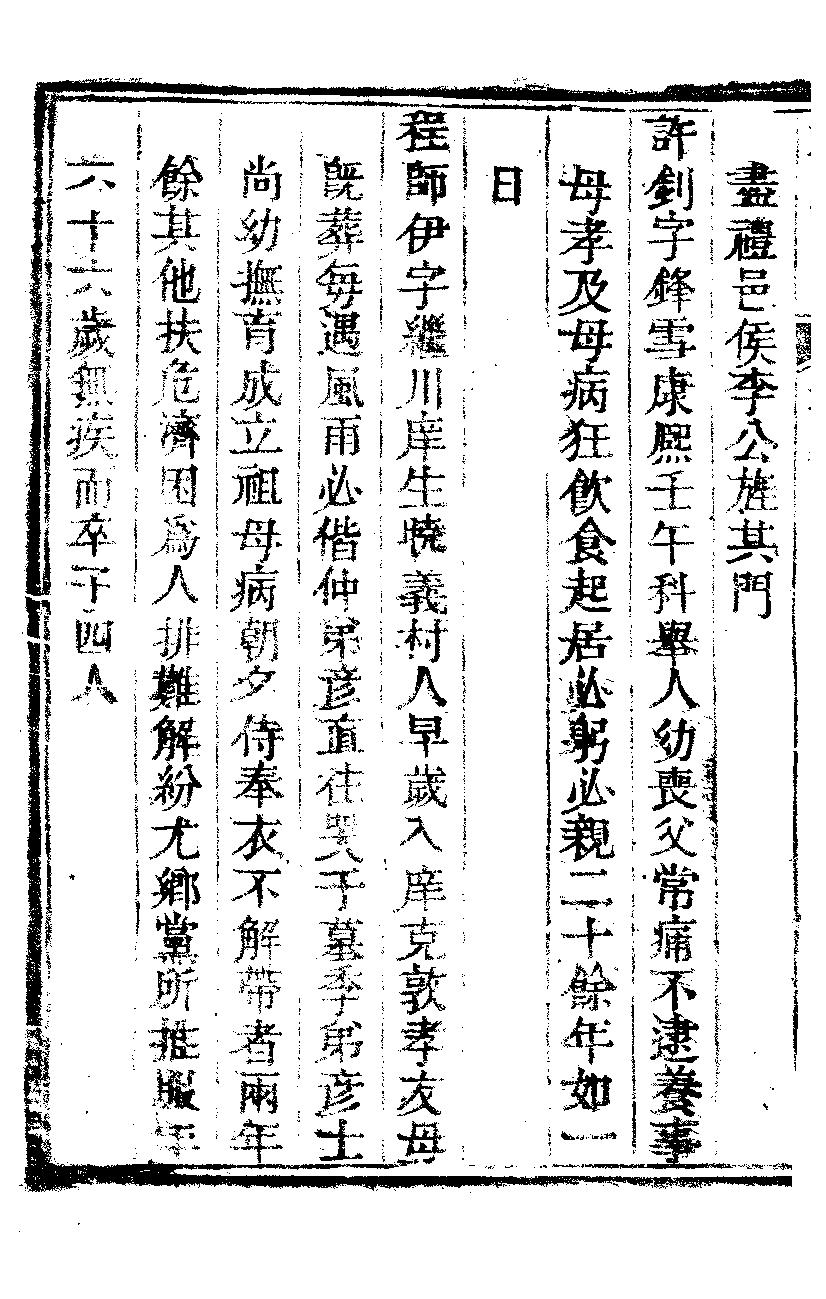 盡禮邑侯李公旌其門
許釗字鋒雪康熙壬午科舉人幼喪父常痛不逮養事
母孝及母病狂飲食起居必躬必親二十餘年如一
日
程師伊字繼川庠生曉義村人早歲入庠克敦孝友母
既葬每遇風雨必偕仲弟彥直往哭于墓季弟彥士
尚幼撫育成立祖母病朝夕侍奉衣不解帶者兩年
餘其他扶危濟困為人排難解紛尤鄉黨所推服年
六十六歲無疾而卒子四人